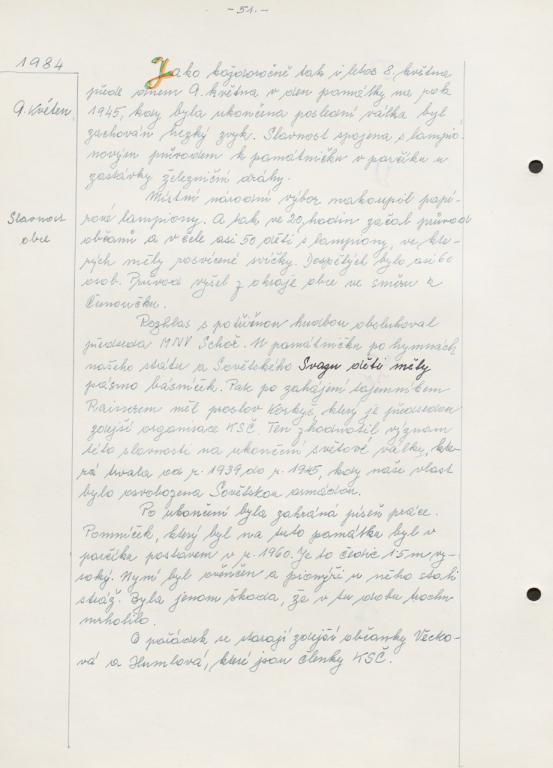 - 51. -
1984
9. Květen
Slavnost
obce
Jako každoročně tak i letos 8. května
přede dnem 9. května v den památky na rok
1945, kdy byla ukončena poslední válka byl
zachován hezký zvyk. Slavnost spojena s lampió-
novým průvodem k památníčku v parčíku u
zastávky železniční dráhy.
Místní národní výbor nakoupil papí-
rové lampiony. A tak ve 20 hodin začal průvod
občanů a v čele asi 50 dětí s lampiony, ve kte-
rých měly rozsvícené svíčky. Dospělých bylo asi 60
osob. Průvod vyšel z okraje obce ve směru z
Rozhlas s potřebnou hudbou obsluhoval
předseda MNV Schoř. U památníčku po hymnách
našeho státu a Sovětského Svazu děti měly
pásmo básniček. Pak po zahájení tajemníkem
Rainerem měl proslov který je předsedou
zdejší organisace KSČ. Ten zhodnotil význam
této slavnosti na ukončení světové války, kte-
rá trvala od r. 1939 do r. 1945, kdy naše vlast
byla osvobozena Sovětskou armádou.
Po ukončení byla zahrána píseň práce.
Pomníček, který byl na tuto památku byl v
parčíku postaven v r. 1960. Je to čedič 1.5 m vy-
soký. Nyní byl ověnčen a pionýři u něho stáli
stráž. Byla jenom škoda, že v tu dobu trochu
mrholilo.
O pořádek se starají zdejší občanky Vecko-
vá a Humlová, které jsou členky KSČ.